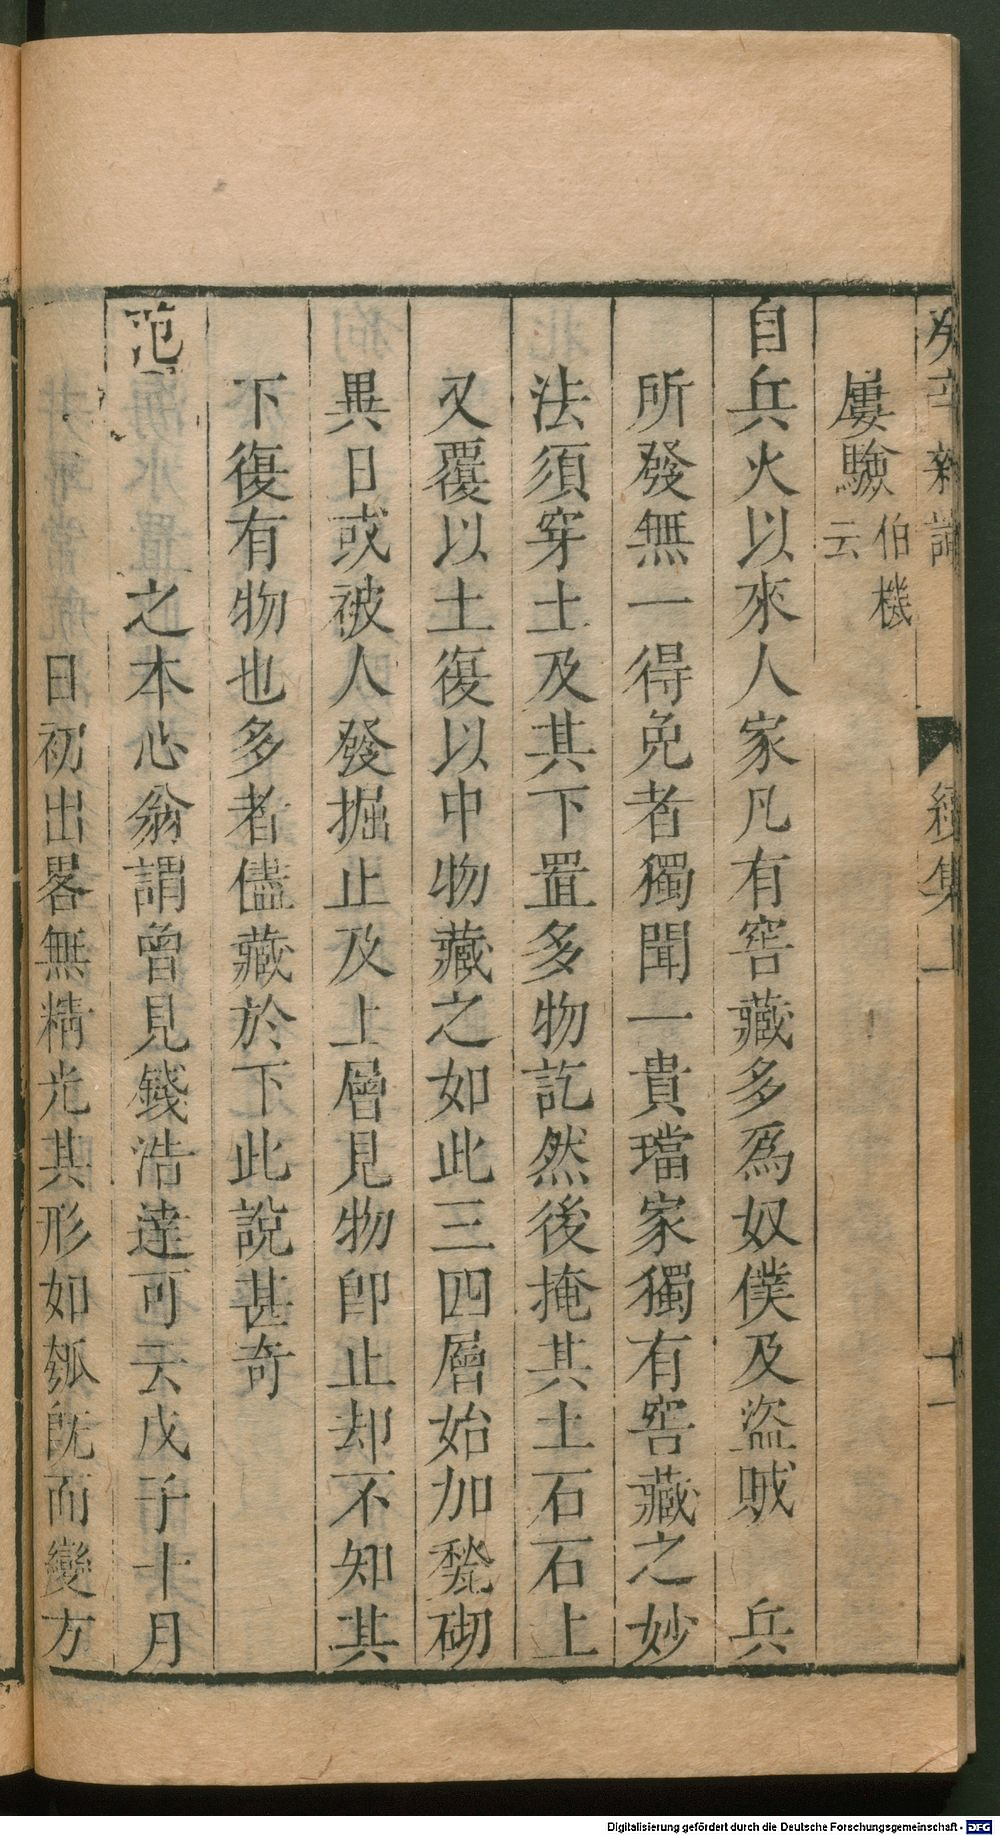 癸辛雜識 續集上 十一
屢驗伯機云
自兵火以來人家凡有窖藏多爲奴僕及盜賊 兵
所發無一得免者獨聞一貴璫家獨有窖藏之妙
法須穿土及其下置多物訖然後掩其土石石上
又覆以土復以中物藏之如此三四層始加甃砌
異日或被人發掘止及上層見物卽止却不知其
下復有物也多者儘藏於下此說甚奇
范 之本心翁謂曾見錢浩達可云戊子十月
日初出畧無精光其形如瓠旣而變方
Digitalisierung gefördert durch die Deutsche Forschungsgemeinschaft - DFG